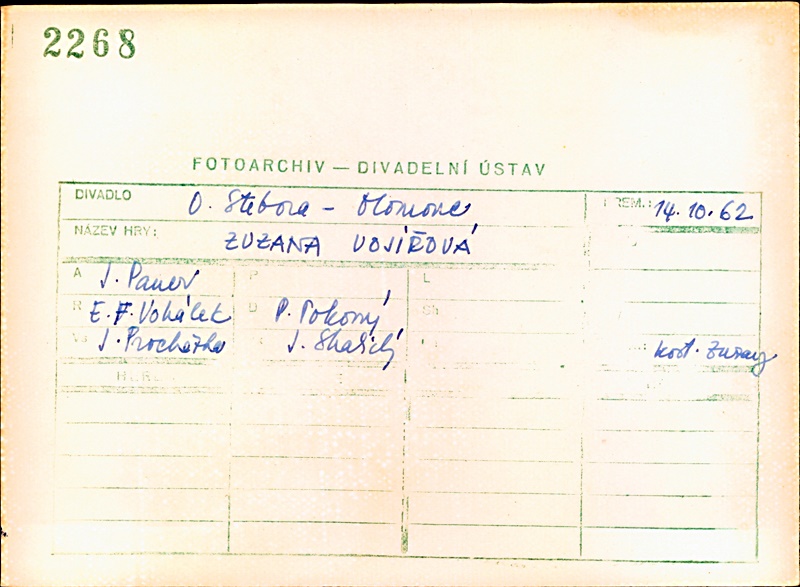 2268
FOTOARCHIV — DIVADELNÍ ÚSTAV
DIVADLO O. Stibora - Olomouc PREM.: 14.10.62
NÁZEV HRY: ZUZANA VOJÍŘOVÁ
A J. Pauer P L
R E. F. Vokálek D P. Pokorný Sb
J. Procházka J. Skalický kost. Zuzany